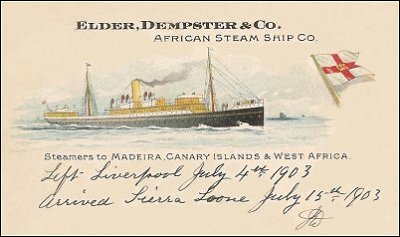 ELDER, DEMPSTER & CO.
AFRICAN STEAM SHIP CO.
Steamers to MADEIRA, CANARY ISLANDS & WEST AFRICA.
Left Liverpool July 4th 1903
Arrived Sierra Loone July 15th 1903